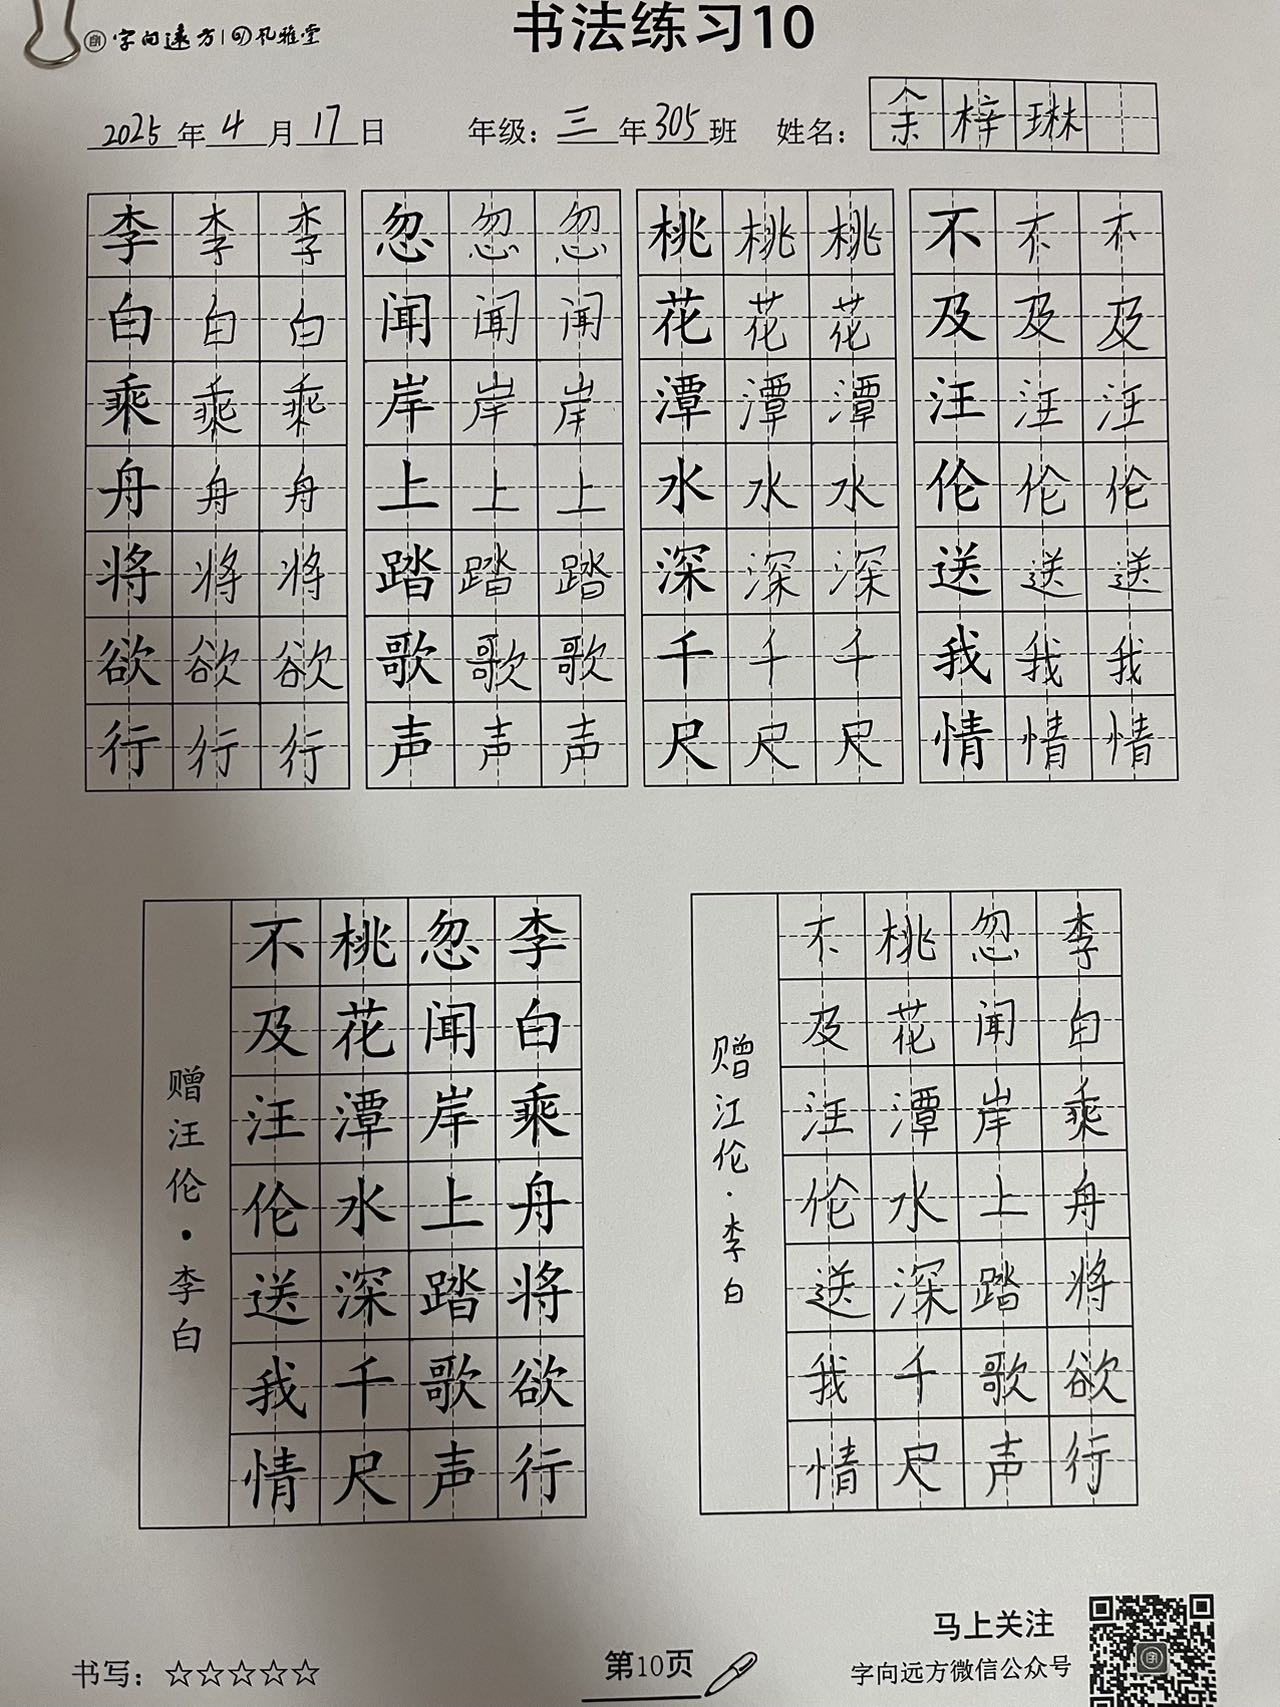 字向远方 凤雅堂
书法练习10
2025年4月17日 年级：三年305班 姓名：余梓琳
李李李 忽忽忽 桃桃桃 不不不
白白白 闻闻闻 花花花 及及及
乘乘乘 岸岸岸 潭潭潭 汪汪汪
舟舟舟 上上上 水水水 伦伦伦
将将将 踏踏踏 深深深 送送送
欲欲欲 歌歌歌 千千千 我我我
行行行 声声声 尺尺尺 情情情
李白乘舟将欲行
忽闻岸上踏歌声
桃花潭水深千尺
不及汪伦送我情
赠汪伦·李白
李白乘舟将欲行
忽闻岸上踏歌声
桃花潭水深千尺
不及汪伦送我情
赠江伦·李白
书写：☆☆☆☆☆
第10页
马上关注
字向远方微信公众号